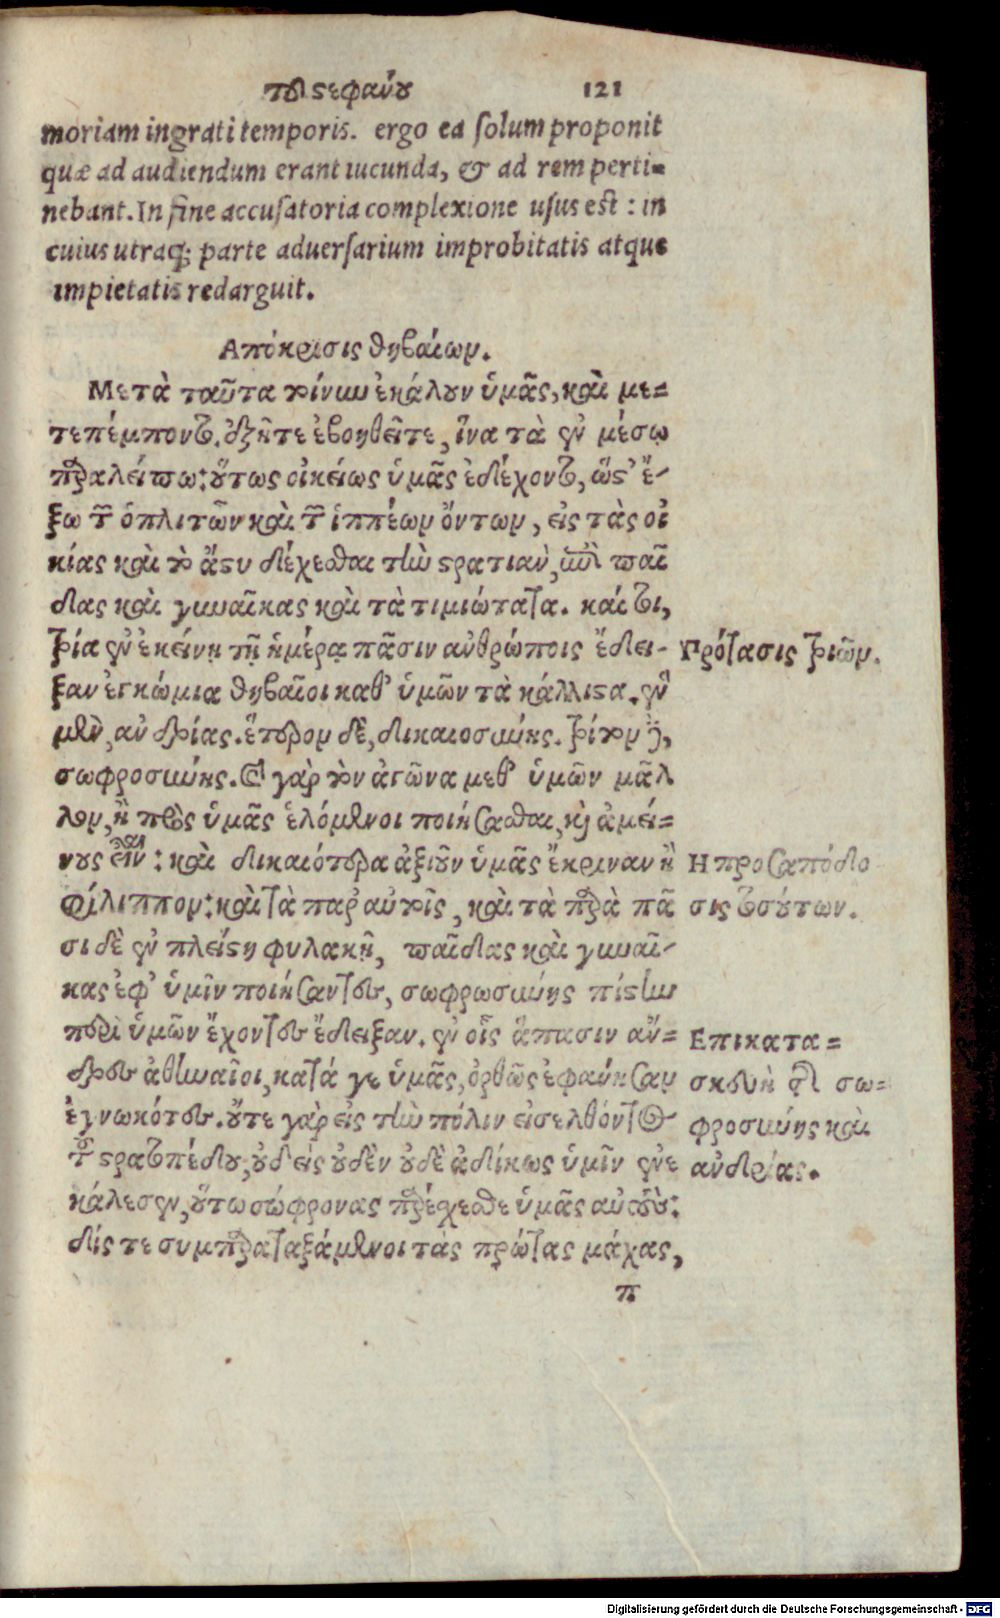 τοῦ στεφάνου 121
moriam ingrati temporis. ergo ea solum proponit
quæ ad audiendum erant iucunda, & ad rem perti=
nebant. In fine accusatoria complexione usus est : in
cuius utraq; parte aduersarium improbitatis atque
impietatis redarguit.
Απόκρισις θηβαίων.
Μετὰ ταῦτα τοίνυν ἐκάλουν ὑμᾶς, καὶ με=
τεπέμποντο. ἐξῆτε ἐβοηθεῖτε, ἵνα τὰ ἐν μέσῳ
παραλείπω: οὕτως οἰκείως ὑμᾶς ἐδέχοντο, ὥστ' ἔ-
ξω τῶν ὁπλιτῶν καὶ τῶν ἱππέων ὄντων, εἰς τὰς οἰ
κίας καὶ τὸ ἄστυ δέχεσθαι τὴν στρατιὰν, ἐπὶ παῖ
δας καὶ γυναῖκας καὶ τὰ τιμιώτατα. καίτοι,
τρία ἐν ἐκείνῃ τῇ ἡμέρᾳ πᾶσιν ἀνθρώποις ἔδει-
Πρότασις τριῶν.
ξαν ἐγκώμια θηβαῖοι καθ' ὑμῶν τὰ κάλλιστα. ἓν
μὲν, ἀνδρίας. ἕτερον δὲ, δικαιοσύνης. τρίτον δὲ,
σωφροσύνης. καὶ γὰρ τὸν ἀγῶνα μεθ' ὑμῶν μᾶλ
λον, ἢ πρὸς ὑμᾶς ἑλόμενοι ποιήσασθαι, καὶ ἀμεί=
νους εἶναι: καὶ δικαιότερα ἀξιοῦν ὑμᾶς ἔκριναν ἢ
Η προσαπόδο
φίλιππον: καὶ τὰ παρ' αὐτοῖς, καὶ τὰ παρὰ πᾶ
σις τοσούτων.
σι δὲ ἐν πλείστῃ φυλακῇ, παῖδας καὶ γυναῖ-
κας ἐφ' ὑμῖν ποιήσαντες, σωφρωσύνης πίστιν
περὶ ὑμῶν ἔχοντες ἔδειξαν. ἐν οἷς ἅπασιν ἄν=
Επικατα=
δρες ἀθηναῖοι, κατά γε ὑμᾶς, ὀρθῶς ἐφάνησαν
σκευὴ περὶ σω=
ἐγνωκότες. οὔτε γὰρ εἰς τὴν πόλιν εἰσελθόντος
φροσύνης καὶ
τοῦ στρατοπέδου, οὐδεὶς οὐδὲν οὐδὲ ἀδίκως ὑμῖν ἐνε
ἀνδρίας.
κάλεσεν, οὕτω σώφρονας παρέχεσθε ὑμᾶς αὐτούς:
δίς τε συμπαραταξάμενοι τὰς πρώτας μάχας,
π
Digitalisierung gefördert durch die Deutsche Forschungsgemeinschaft - DFG